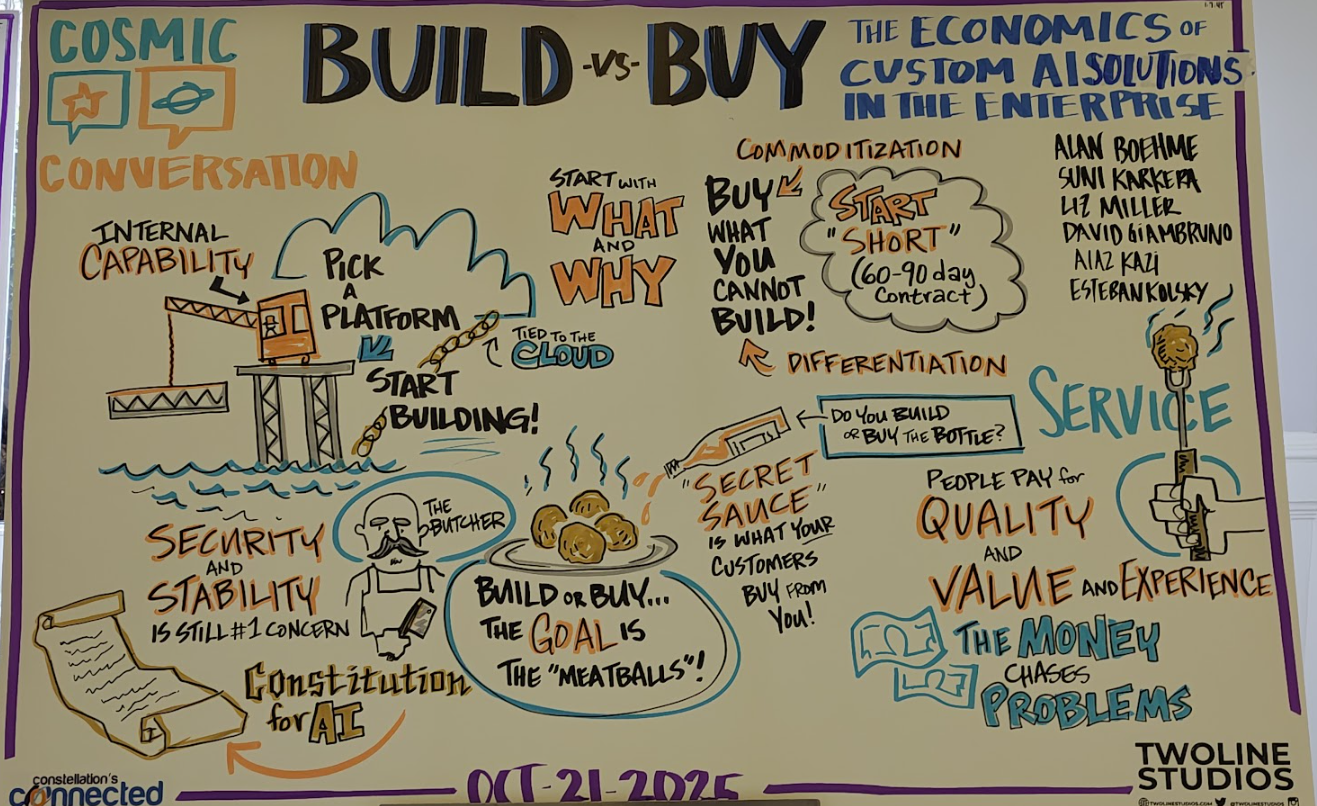 COSMIC
CONVERSATION
BUILD -VS- BUY
THE ECONOMICS OF
CUSTOM AI SOLUTIONS
IN THE ENTERPRISE
ALAN BOEHME
SUNI KARKERA
LIZ MILLER
DAVID GIAMBRUNO
AIAZ KAZI
ESTEBAN KOLSKY
INTERNAL
CAPABILITY
PICK
A
PLATFORM
START
BUILDING!
TIED TO THE
CLOUD
START WITH
WHAT
AND
WHY
COMMODITIZATION
BUY
WHAT
YOU
CANNOT
BUILD!
DIFFERENTIATION
START
"SHORT"
(60-90 day
contract)
DO YOU BUILD
OR BUY THE BOTTLE?
"SECRET
SAUCE"
IS WHAT YOUR
CUSTOMERS
BUY FROM
YOU!
SERVICE
PEOPLE PAY for
QUALITY
AND
VALUE AND EXPERIENCE
THE MONEY
CHASES
PROBLEMS
SECURITY
AND
STABILITY
IS STILL #1 CONCERN
THE
BUTCHER
BUILD OR BUY...
THE GOAL IS
THE "MEATBALLS"!
Constitution
for AI
constellation's
connected
OCT-21-2025
TWOLINE
STUDIOS
TWOLINESTUDIOS.COM